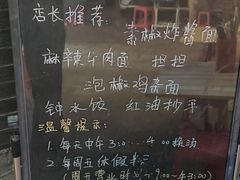 店长推荐:
素椒炸酱面
麻辣牛肉面 担担
泡椒鸡杂面
钟水饺 红油抄手
温馨提示:
1. 每天中午3:0…4:00休息
2. 每周五休假半天
(周五营业时间9:00~午3:00)